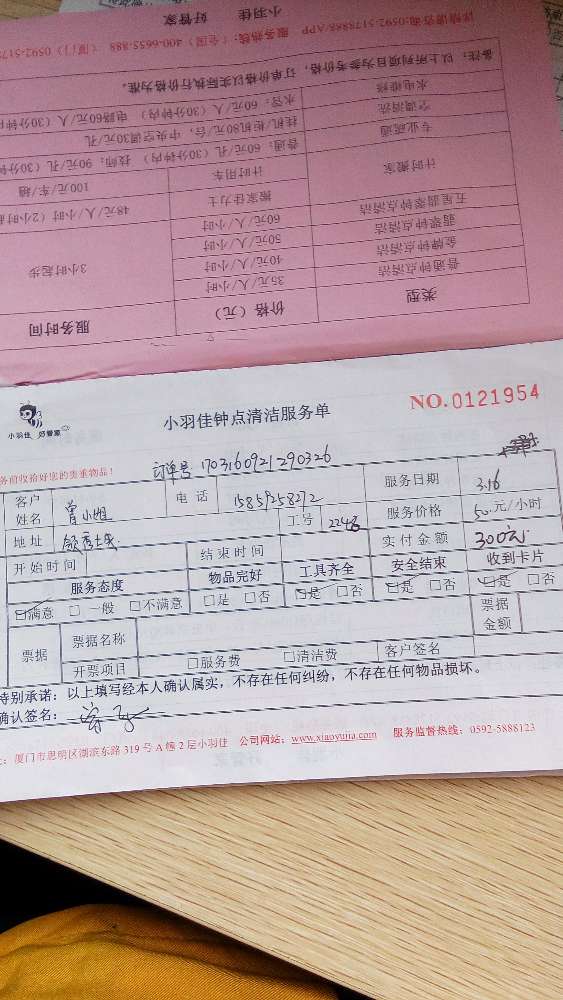 小羽佳 好管家
详情请咨询:0592-5178888/APP 服务热线:(全国)400-6655-888 (厦门)0592-517
备注:以上所列项目为参考价格,订单价格以实际执行价格为准。
水电维修 水管:60元/人(30分钟内) 电路60元/人(30分钟内
空调清洗 挂机/柜机80元/台,中央空调30元/孔
专业疏通 普通:60元/孔(30分钟内) 技师:90元/孔(30分钟
计时搬家 计时用车 100元/车/趟
搬家大力士 48元/人/小时(2小时起
五星翡翠钟点清洁 60元/人/小时
翡翠钟点清洁 50元/人/小时
金牌钟点清洁 40元/人/小时 3小时起步
普通钟点清洁 35元/人/小时
类型 价格(元) 服务时间
小羽佳 好管家
小羽佳钟点清洁服务单
NO.0121954
务前收拾好您的贵重物品!
订单号 1703160921290326
客户姓名 曾小姐 电话 服务日期 3.16
地址 工号 2248 服务价格 50元/小时
开始时间 结束时间 实付金额 300元
服务态度 物品完好 工具齐全 安全结束 收到卡片
□满意 □一般 □不满意 □是 □否 □是 □否 □是 □否 □是 □否
票据 票据名称 票据金额
开票项目 □服务费 □清洁费 客户签名
特别承诺:以上填写经本人确认属实,不存在任何纠纷,不存在任何物品损坏。
确认签名:
:厦门市思明区湖滨东路319号A幢2层小羽佳 公司网站:www.xiaoyujia.com 服务监督热线:0592-5888123